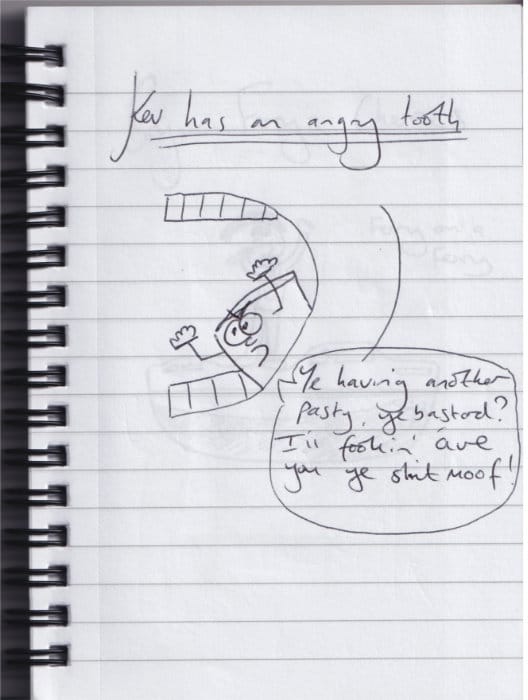 Kev has an angry tooth
Ye having another
pasty, ye bastard?
I'll fookin' ave
you ye shit moof!